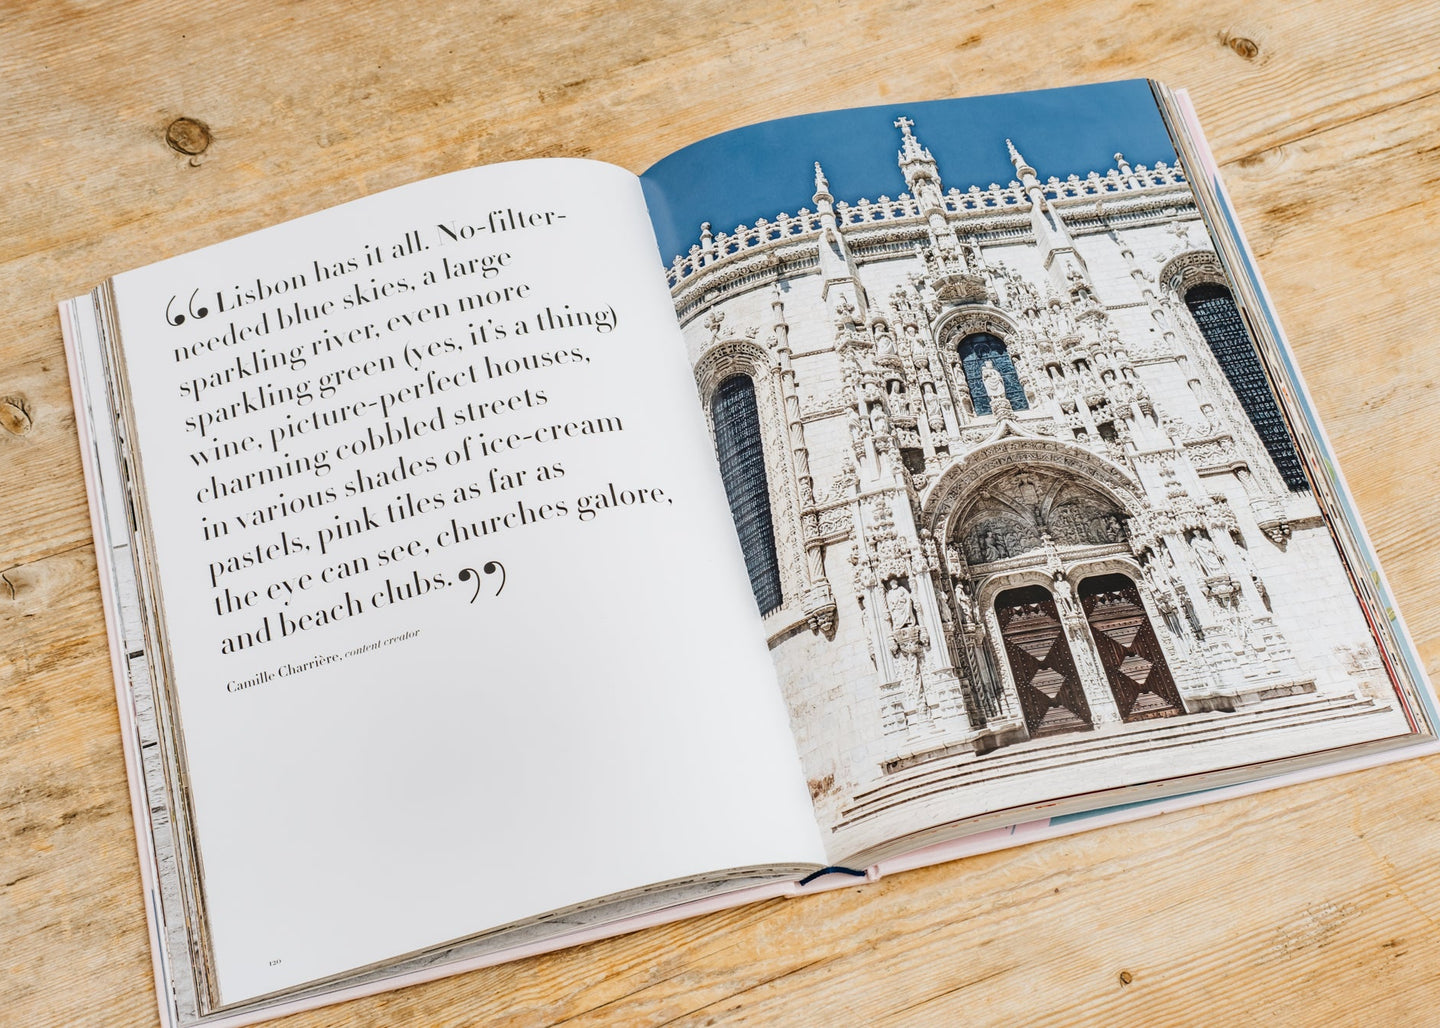 “Lisbon has it all. No-filter-
needed blue skies, a large
sparkling river, even more
sparkling green (yes, it’s a thing)
wine, picture-perfect houses,
charming cobbled streets
in various shades of ice-cream
pastels, pink tiles as far as
the eye can see, churches galore,
and beach clubs.”
Camille Charrière, content creator
120